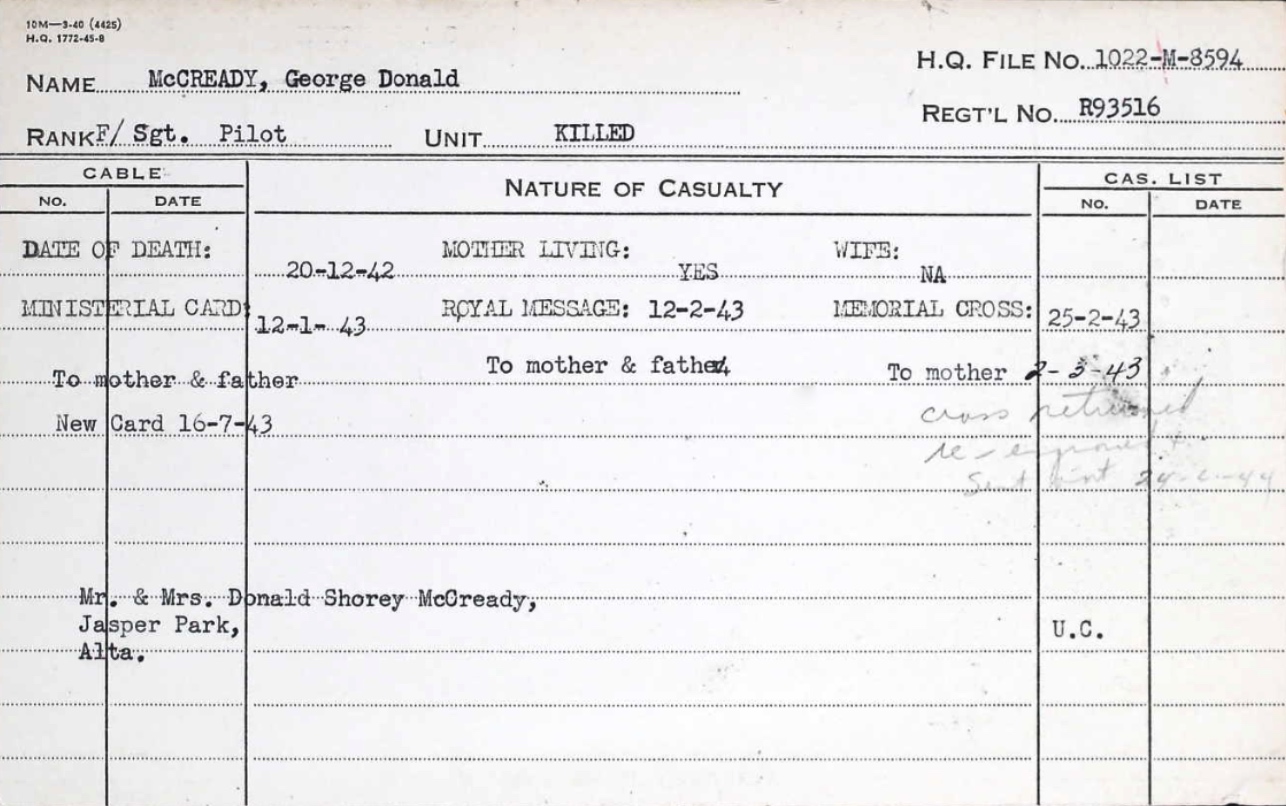 10M—3-40 (4425)
H.Q. 1772-45-8
H.Q. FILE No. 1022-M-8594
NAME McCREADY, George Donald
REGT'L No. R93516
RANK F/ Sgt. Pilot UNIT KILLED
CABLE NATURE OF CASUALTY CAS. LIST
No. DATE No. DATE
DATE OF DEATH: 20-12-42 MOTHER LIVING: YES WIFE: NA
MINISTERIAL CARD: 12-1- 43 ROYAL MESSAGE: 12-2-43 MEMORIAL CROSS: 25-2-43
To mother & father To mother & father To mother 2-3-43
New Card 16-7-43
cross returned
re-
Sent
Mr. & Mrs. Donald Shorey McCready,
Jasper Park, U.C.
Alta.